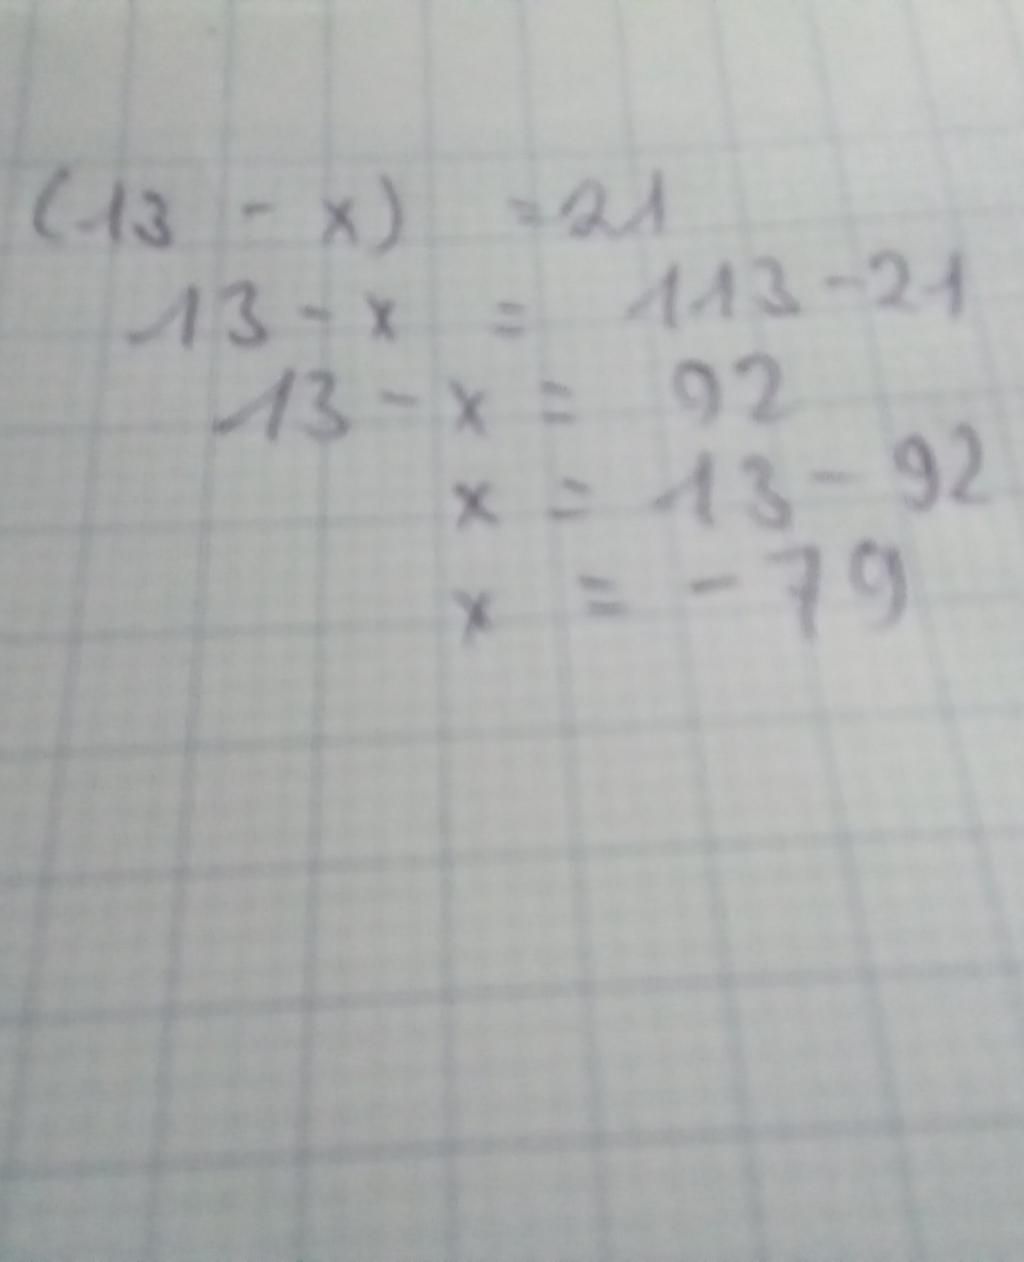 (13 - x) = 21
13 - x = 113 - 21
13 - x = 92
x = 13 - 92
x = - 79